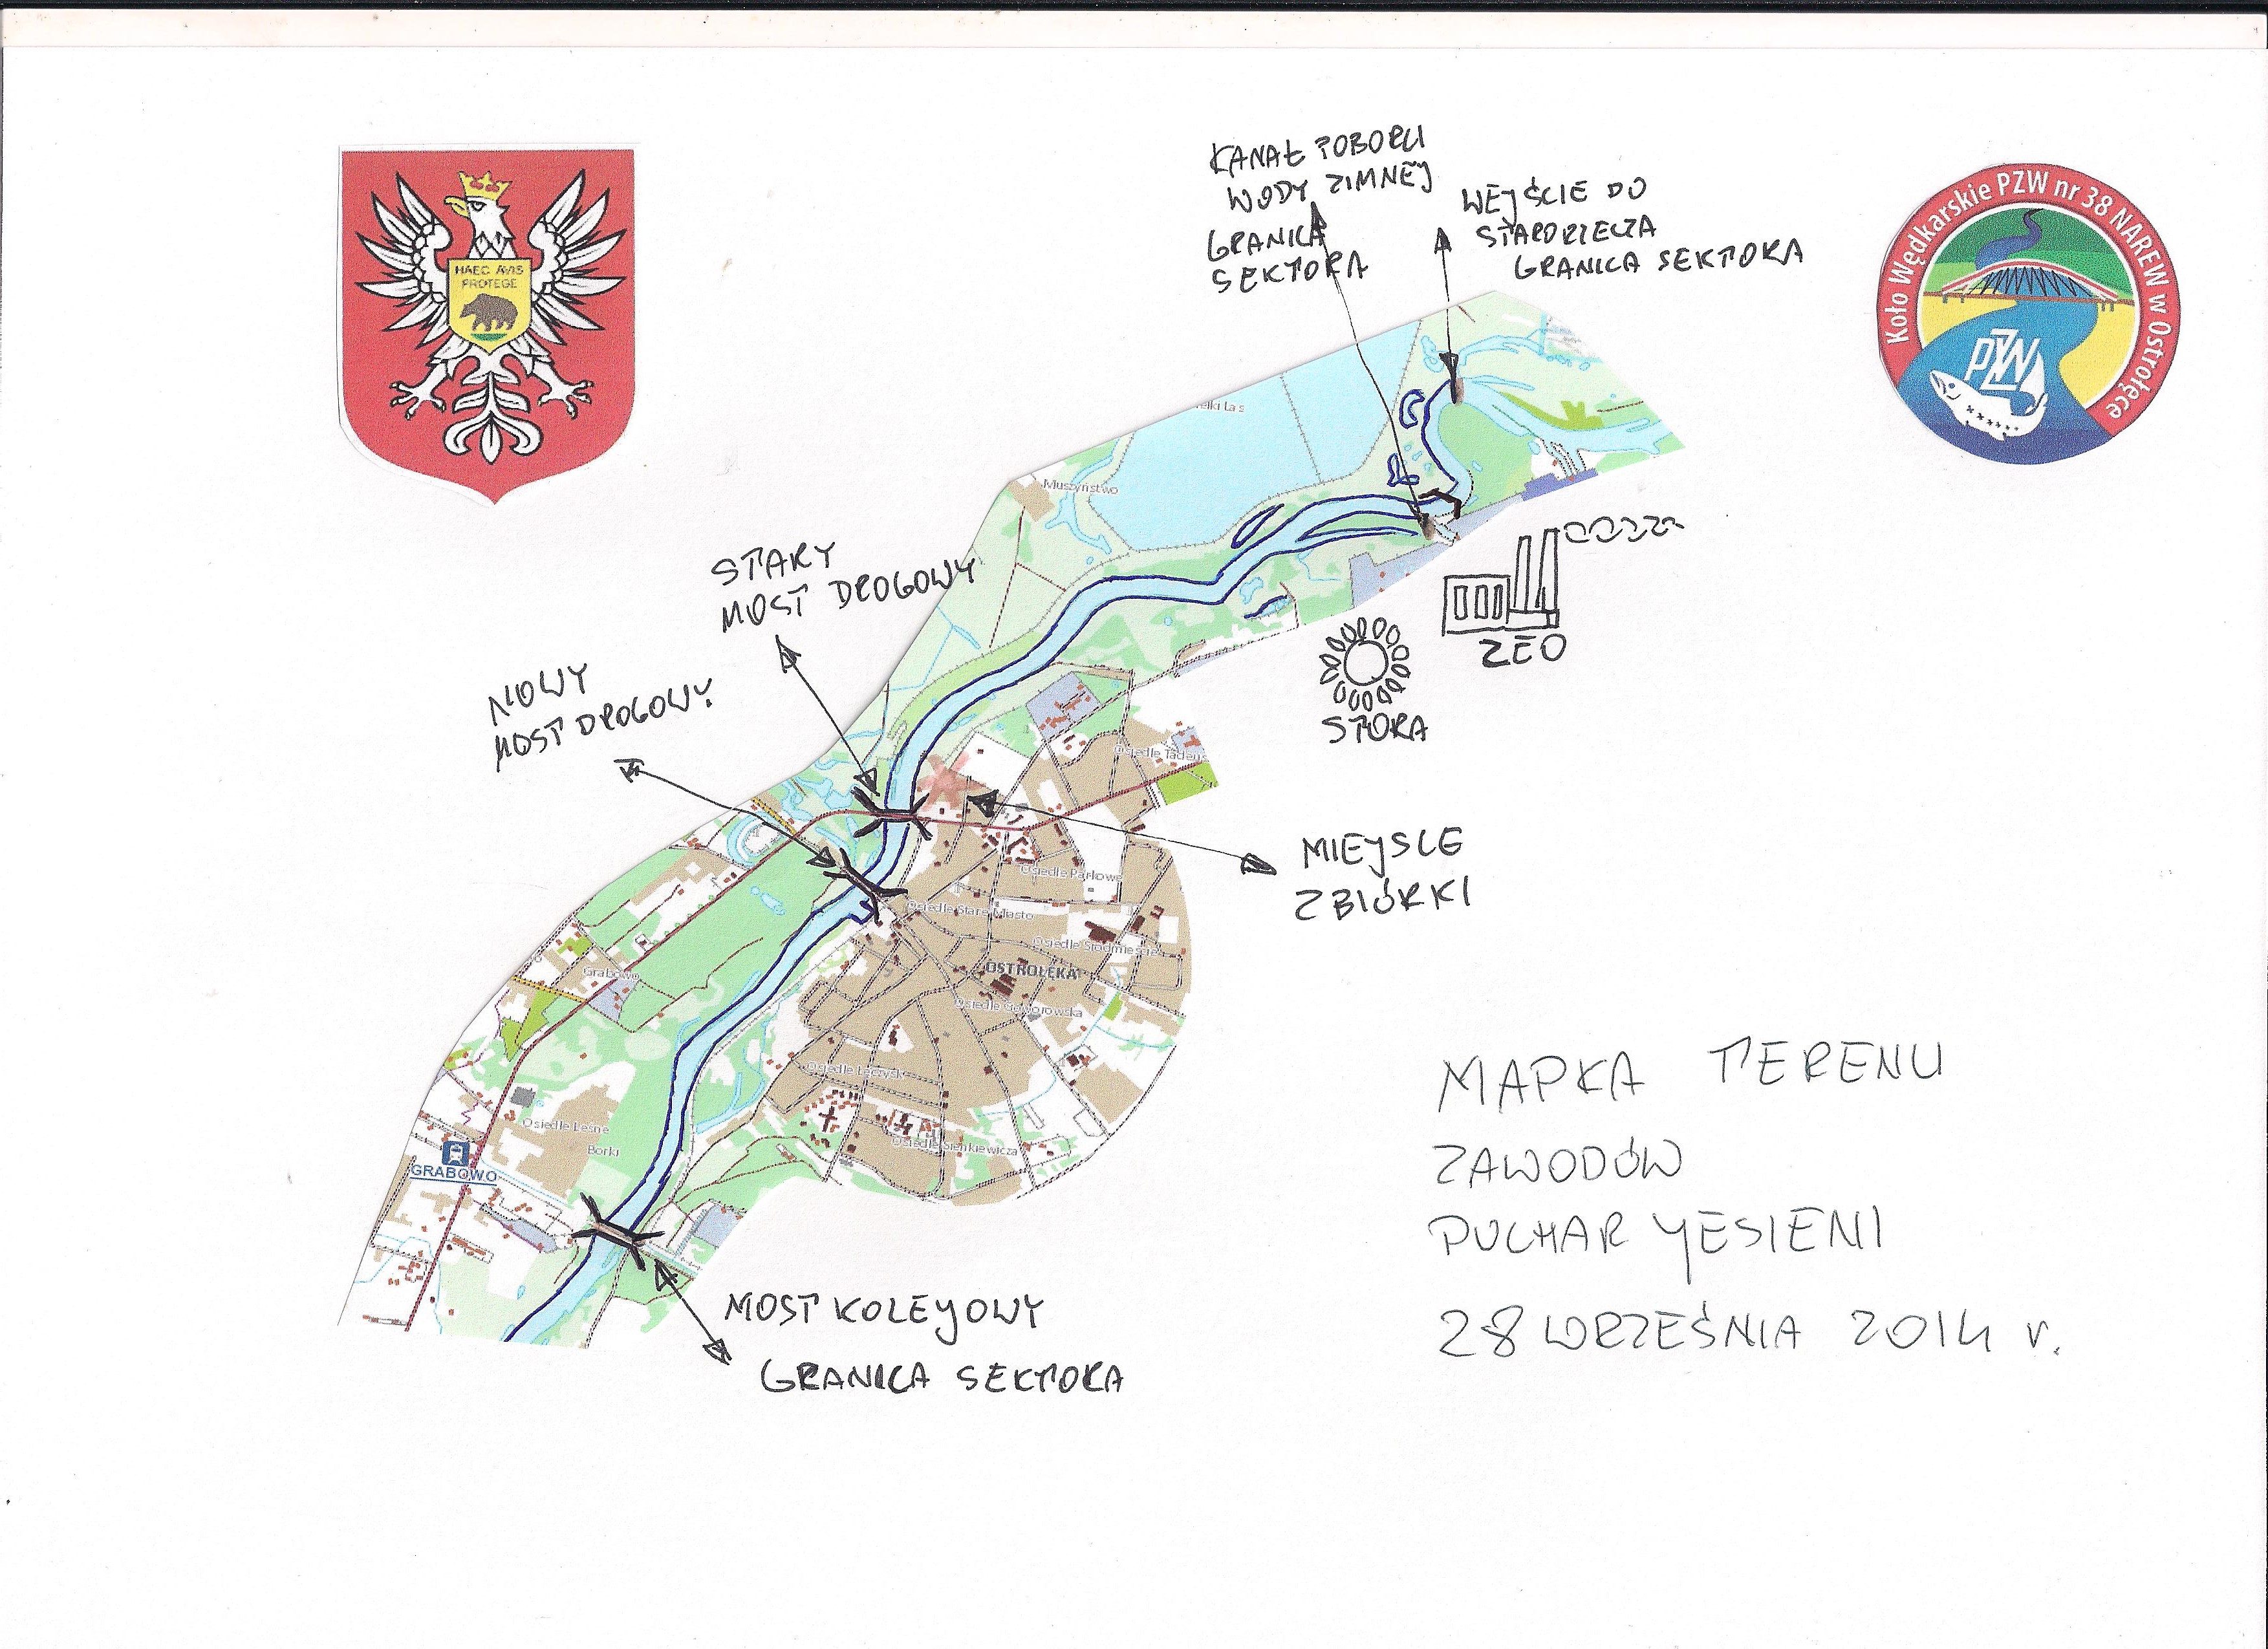 HAEC AVIS
PROTEGE
KANAŁ POBORU
WODY ZIMNEJ
GRANICA
SEKTORA
WEJŚCIE DO
STARORZECZA
GRANICA SEKTORA
Koło Wędkarskie PZW nr 38 NAREW w Ostrołęce
PZW
Muszyństwo
STARY
MOST DROGOWY
NOWY
MOST DROGOWY
ZEO
STORA
MIEJSCE
ZBIÓRKI
Osiedle Parkowe
Osiedle Stare Miasto
Osiedle Śródmieście
OSTROŁĘKA
Grabowo
Osiedle Łęczysk
Osiedle Leśne
Borki
Osiedle Sienkiewicza
GRABOWO
MOST KOLEJOWY
GRANICA SEKTORA
MAPKA TERENU
ZAWODÓW
PUCHAR JESIENI
28 WRZEŚNIA 2014 r.